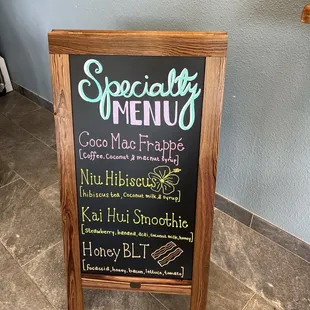 Specialty
MENU
Coco Mac Frappé
[Coffee, Coconut & macnut syrup]
Niu Hibiscus
[hibiscus tea, Coconut milk & syrup]
Kai Hui Smoothie
[Strawberry, banana, acai, coconut milk, honey]
Honey BLT
[focaccia, honey, bacon, lettuce, tomato]